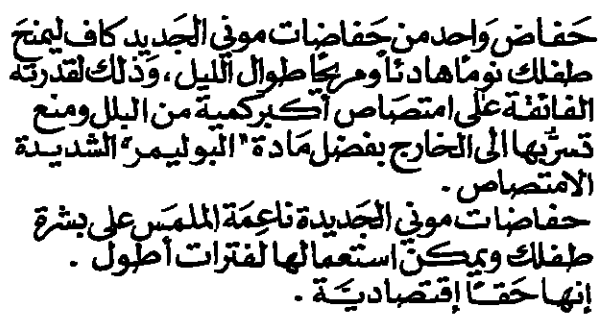 حَفاض وَاحد من حَفاضات موني الجَديد كاف ليمنحَ
طفلك نومًا هادئًا ومريحًا طوال الليل، وَذلك لقدرته
الفائقة على امتصَاص أكبر كمية من البلل ومنع
تسرّبها الى الخارج بفضل مَادة "البوليمر" الشديدة
الامتصاص.
حفاضات موني الجَديدة ناعِمَة الملمَس على بشرة
طفلك ويمكن استعمالها لفترات أطول.
إنها حَقًا إقتصاديَّة.